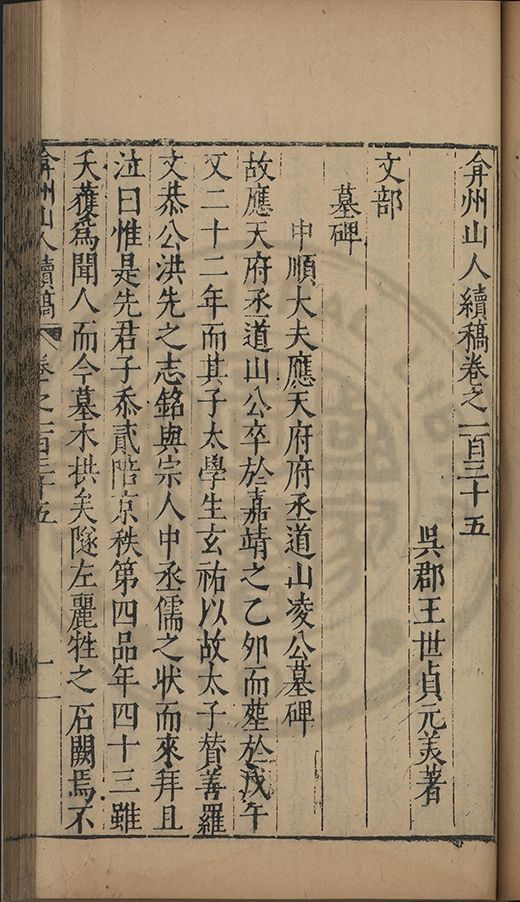 弇州山人續稿卷之一百三十五
吳郡王世貞元美著
文部
墓碑
中順大夫應天府府丞道山凌公墓碑
故應天府丞道山公卒於嘉靖之乙夘而塟於戊午
又二十二年而其子太學生玄祐以故太子賛善羅
文恭公洪先之志銘與宗人中丞儒之狀而來拜且
泣曰惟是先君子忝貳陪京秩第四品年四十三雖
夭雅爲聞人而今墓木拱矣隧左麗牲之石闕焉不
弇州山人續稿 卷之一百三十五 一